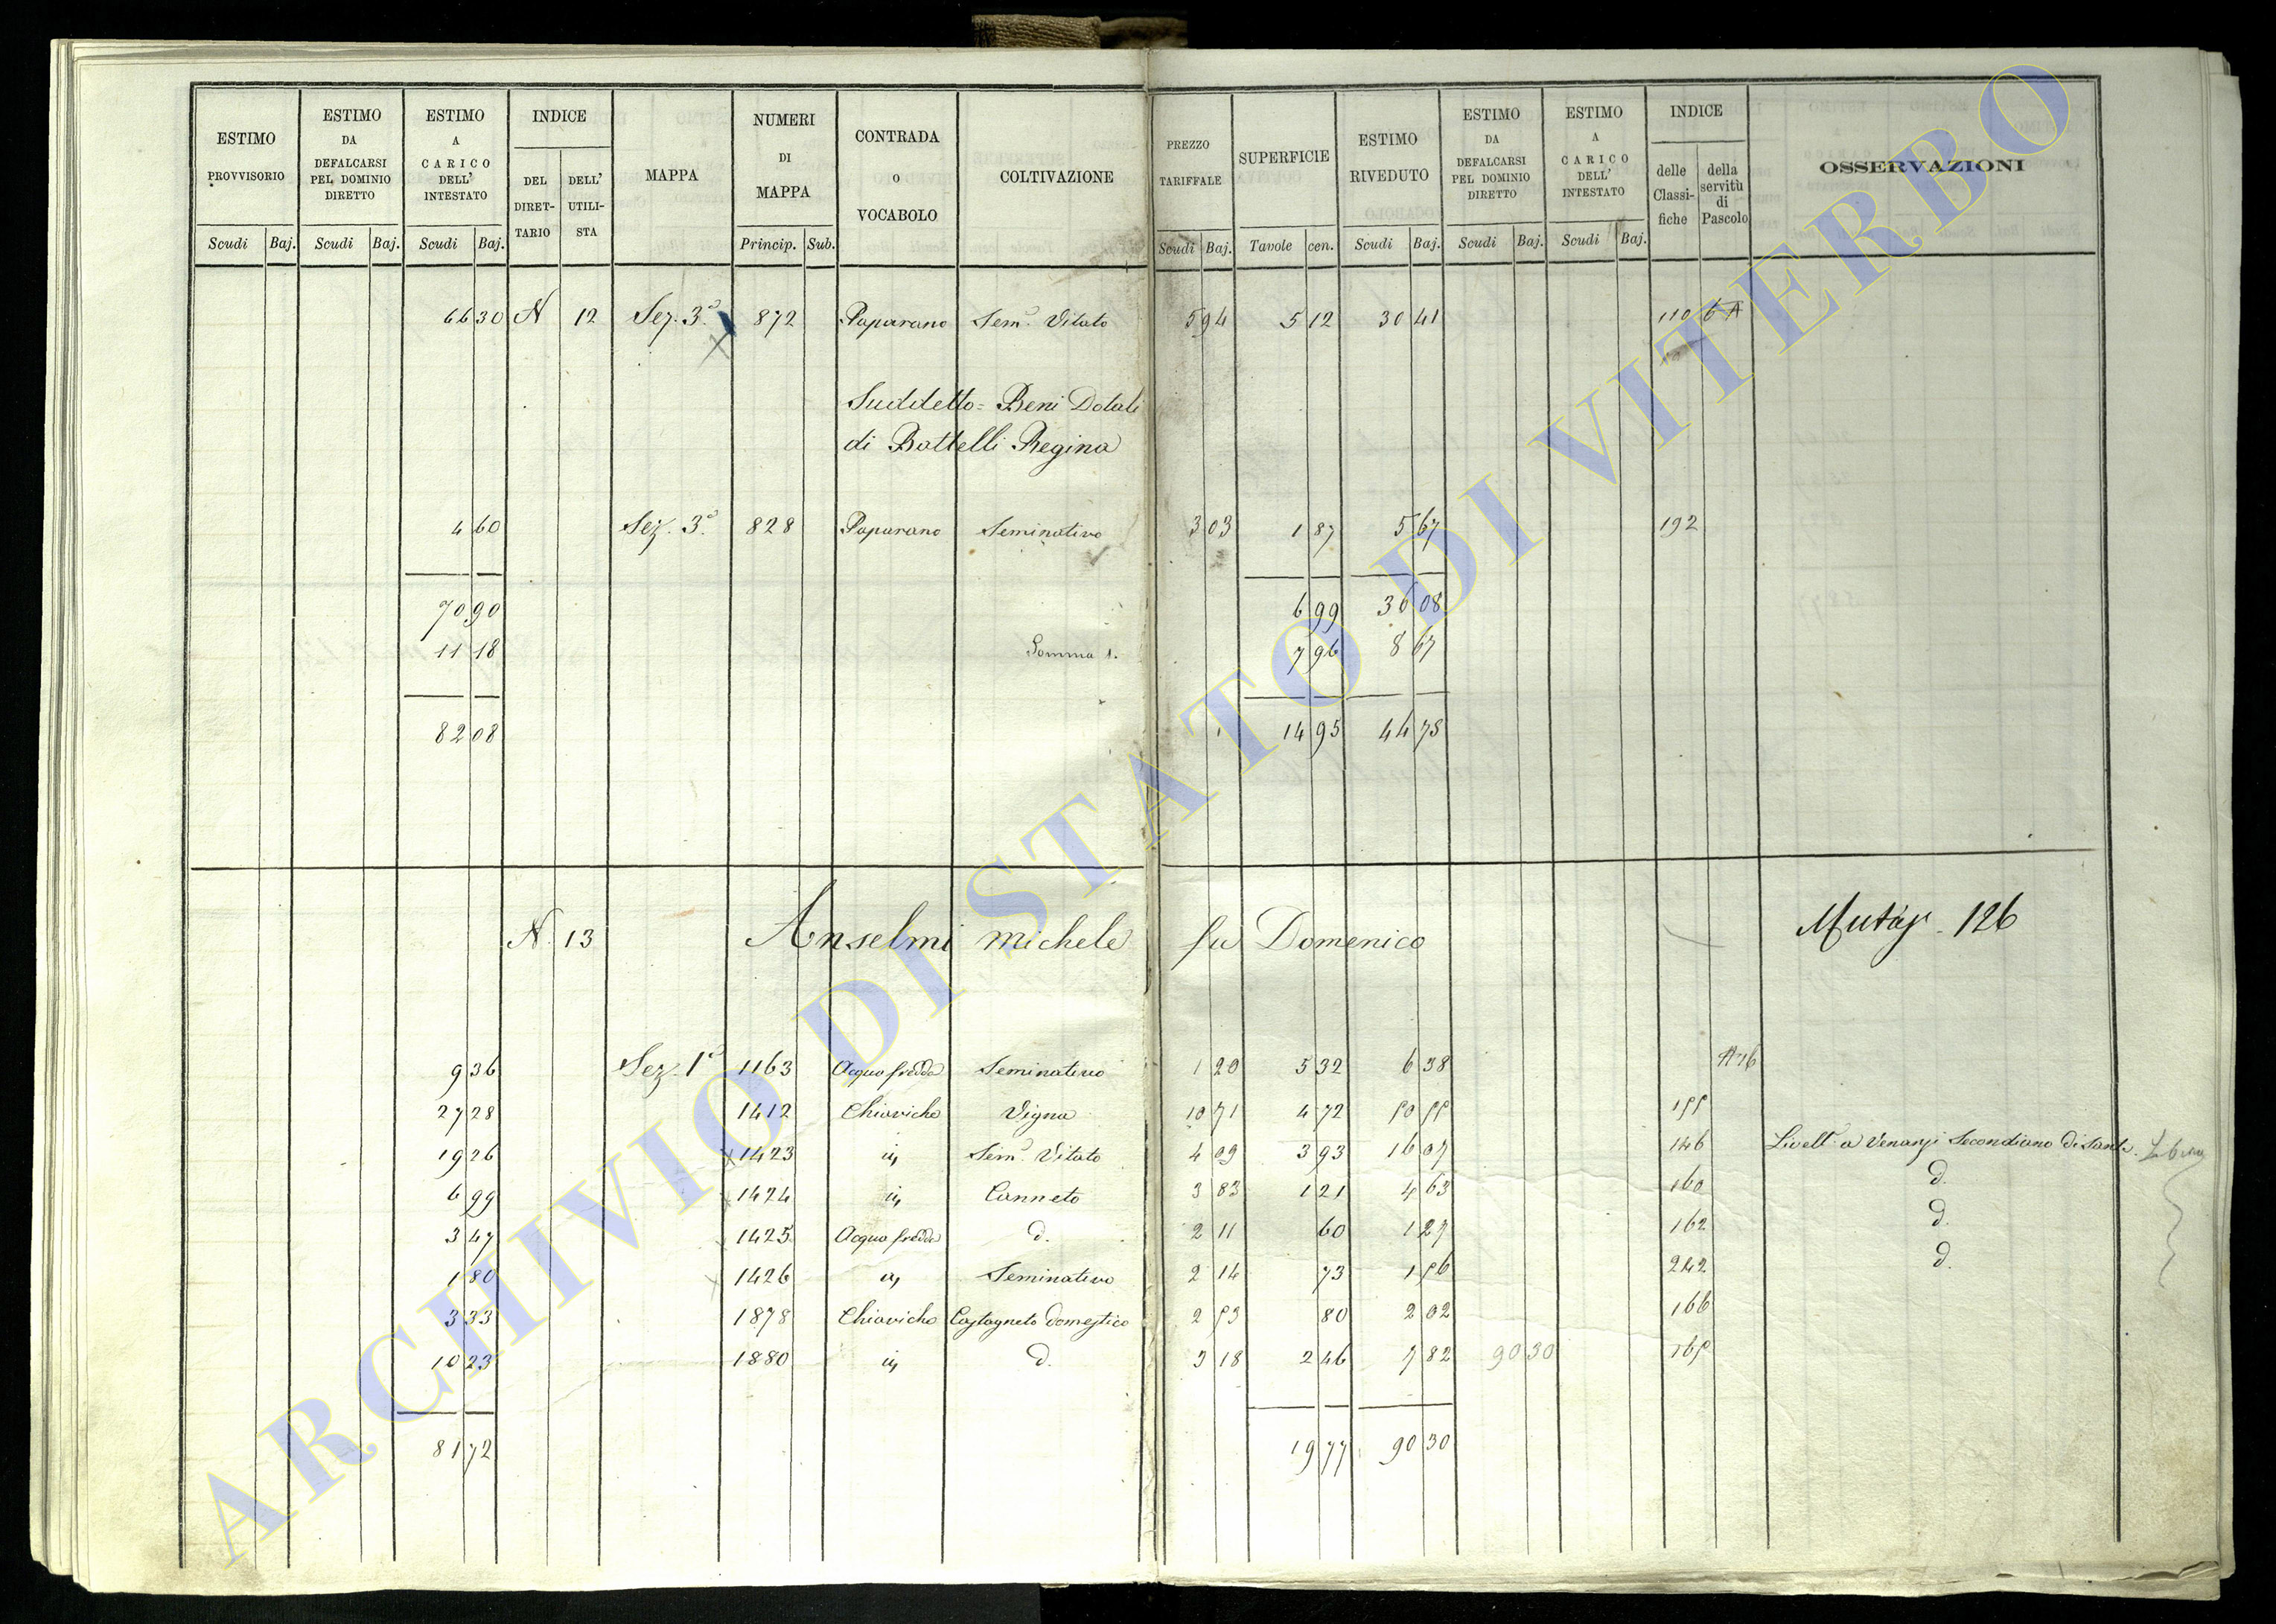 ESTIMO PROVVISORIO
ESTIMO DA DEFALCARSI PEL DOMINIO DIRETTO
ESTIMO A CARICO DELL' INTESTATO
INDICE
DEL DIRETTARIO
DELL' UTILISTA
MAPPA
NUMERI DI MAPPA
CONTRADA o VOCABOLO
COLTIVAZIONE
PREZZO TARIFFALE
SUPERFICIE
ESTIMO RIVEDUTO
ESTIMO DA DEFALCARSI PEL DOMINIO DIRETTO
ESTIMO A CARICO DELL' INTESTATO
INDICE
delle Classifiche
della servitù di Pascolo
OSSERVAZIONI
Scudi Baj. Scudi Baj. Scudi Baj. Princip. Sub. Scudi Baj. Tavole cen. Scudi Baj. Scudi Baj. Scudi Baj.
66 30 N 12 Sez. 3ª 872 Paparano Semº Vitato 5 94 5 12 30 41 110 6 A
Suddetto = Beni Dotali
di Battelli Regina
4 60 Sez. 3ª 828 Paparano Seminativo 3 03 1 87 5 67 192
70 90 6 99 36 08
11 18 Somma 1. 7 96 8 67
82 08 14 95 44 75
N. 13 Anselmi Michele fu Domenico 126
9 36 Sez. 1ª 1163 Acqua fredda Seminativo 1 20 5 32 6 38 A 76
27 28 1412 Chiaviche Vigna 10 71 4 72 50 55 155
19 26 1423 id. Semº Vitato 4 09 3 93 16 07 146 Livellº a Venanzi Secondiano di Sante
6 99 1424 id. Canneto 3 83 1 21 4 63 160 d.
3 47 1425 Acqua fredda d. 2 11 60 1 27 162 d.
1 80 1426 id. Seminativo 2 14 73 1 56 242 d.
3 33 1878 Chiaviche Castagneto domestico 2 53 80 2 02 166
10 23 1880 id. d. 3 18 2 46 7 82 90 30 165
81 72 19 77 90 30
ARCHIVIO DI STATO DI VITERBO